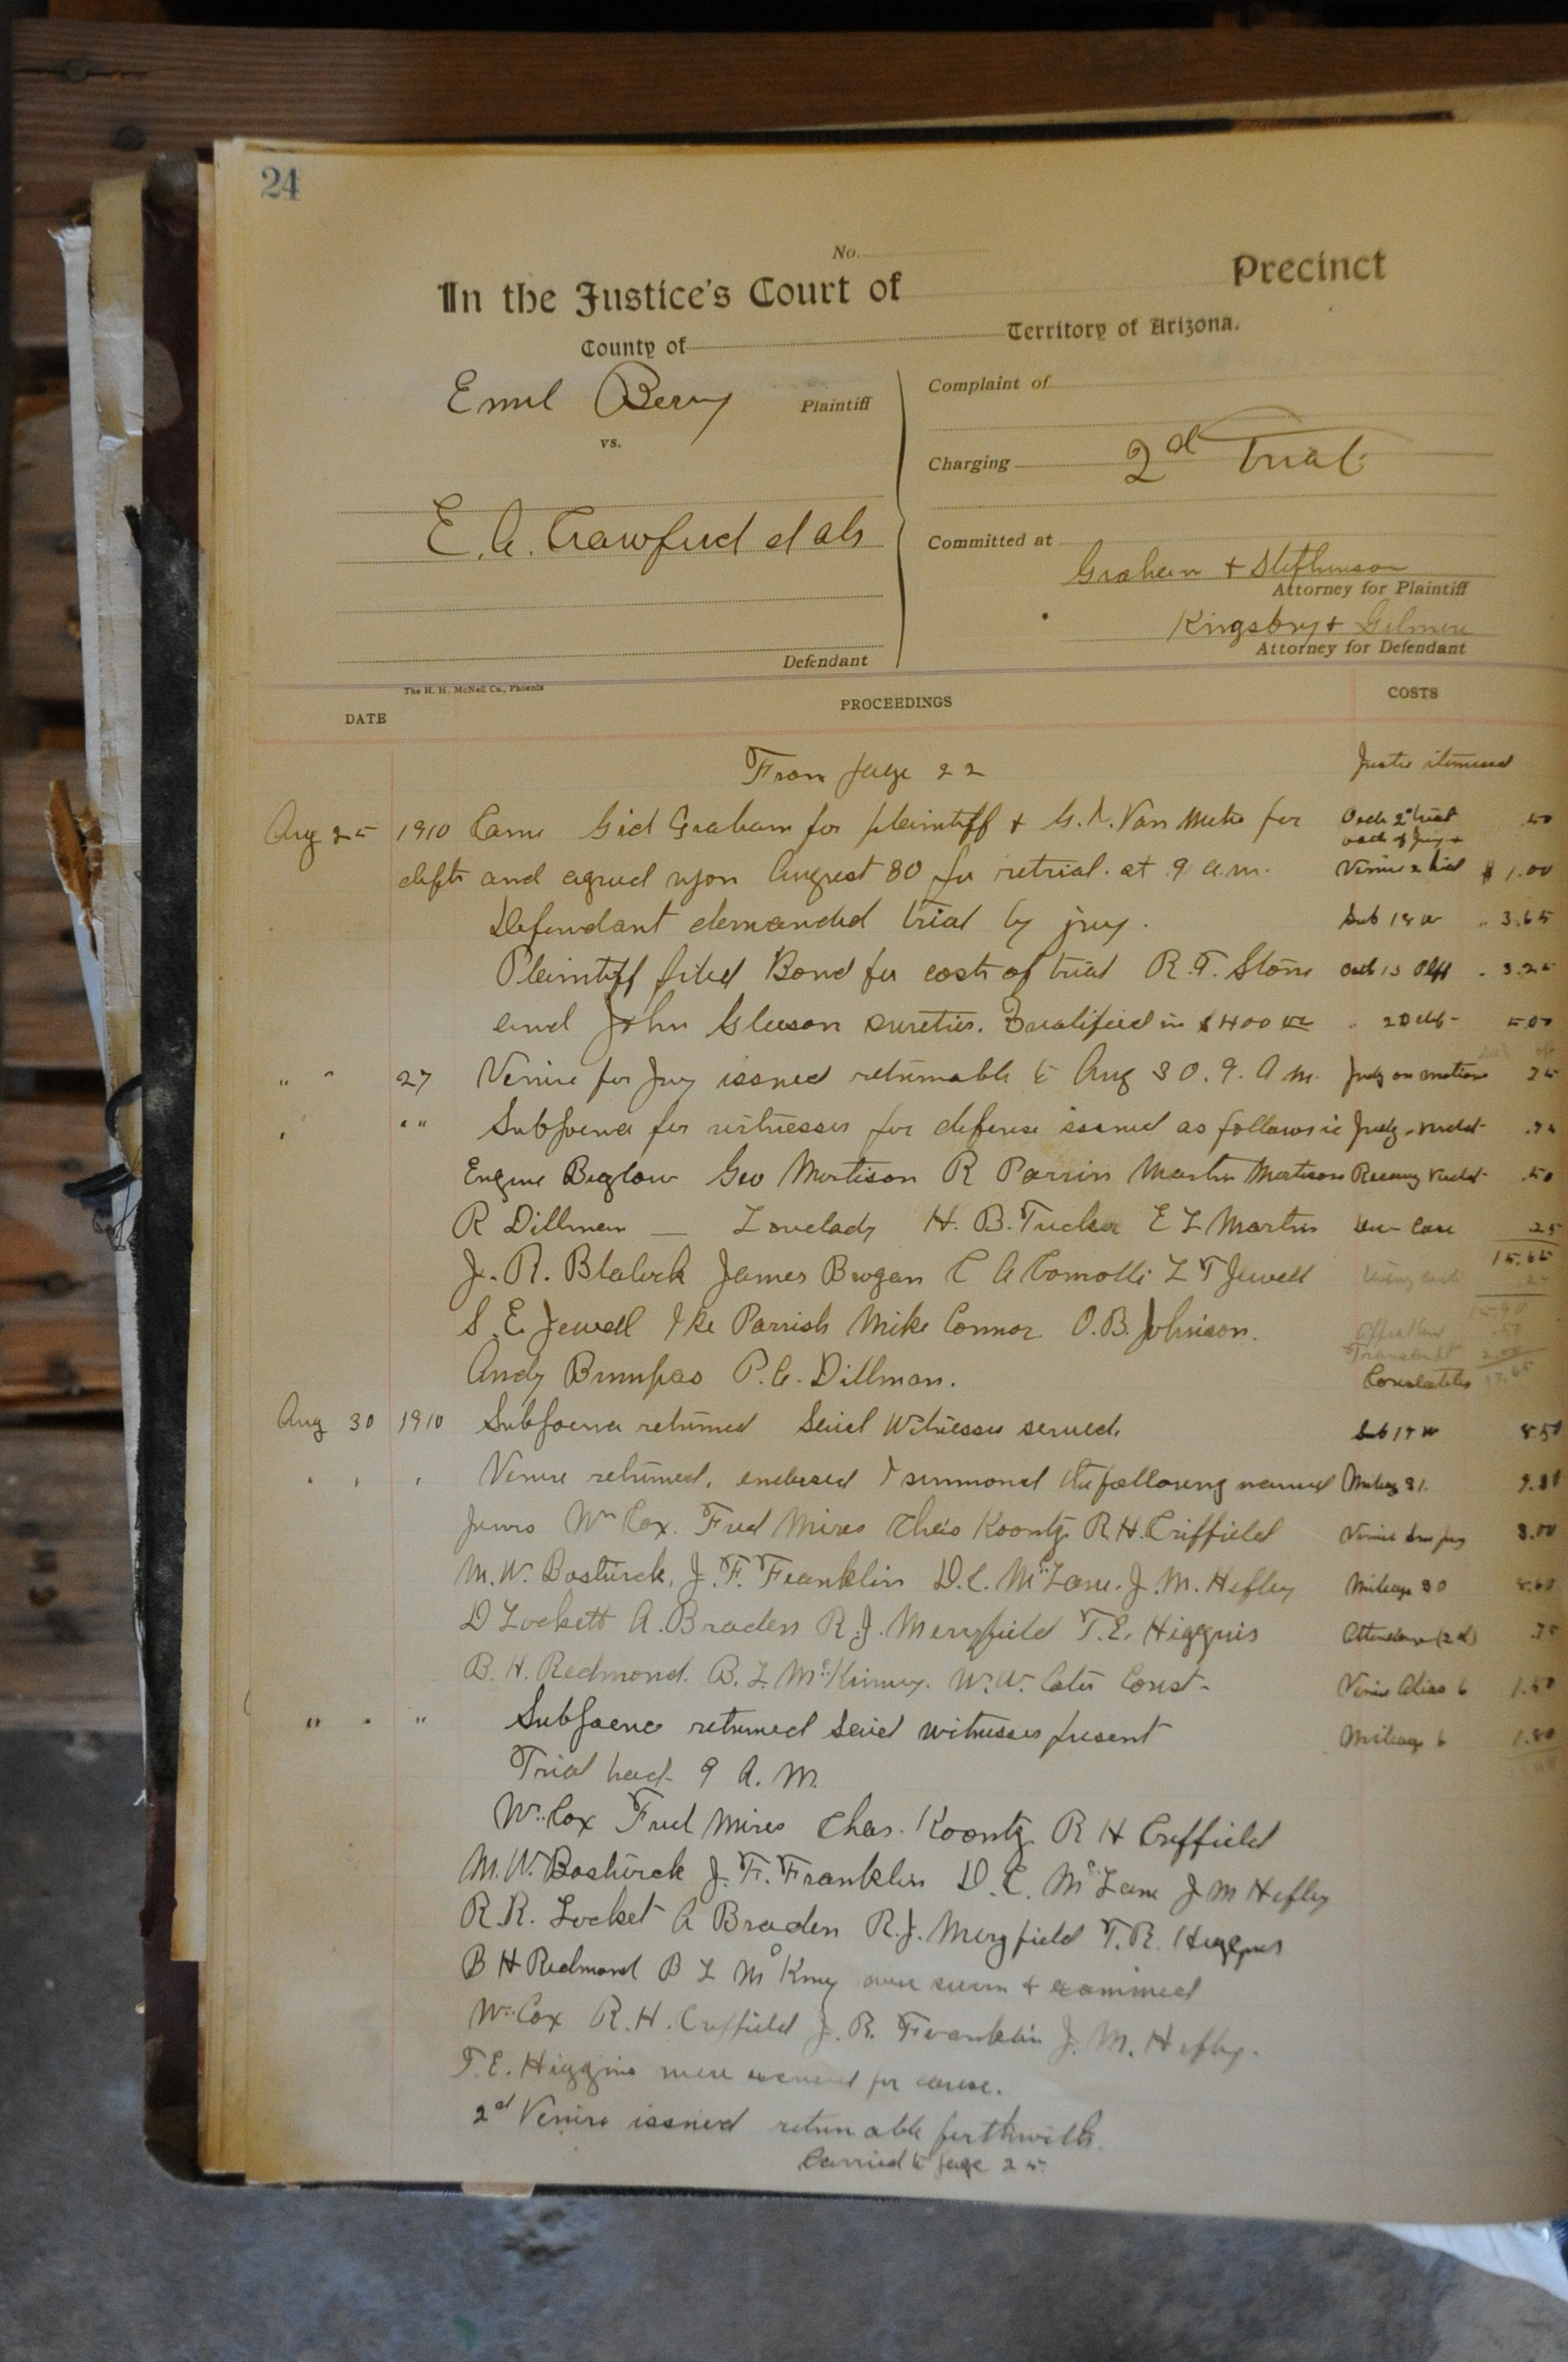 24
No.
In the Justice's Court of Precinct
County of Territory of Arizona.
Emil Berry Plaintiff
vs.
E. A. Crawford et als
Defendant
Complaint of
Charging 2d Trial
Committed at
Graham + Stephenson
Attorney for Plaintiff
Kingsbry + Gilmore
Attorney for Defendant
The H. H. McNeil Co., Phoenix
DATE PROCEEDINGS COSTS
From page 22
Aug 25 1910 Came Gid Graham for plaintiff + Van Meter for .50
defts and agreed upon August 30 for retrial at 9 a.m. Venire $ 1.00
Defendant demanded trial by jury. Sub 18 w 3.65
Plaintiff filed Bond for costs of trial R. T. Stone 3.25
and John Gleeson sureties. Qualified in $400 5.00
" " 27 Venire for Jury issued returnable to Aug 30. 9. A m. Judg on motion 25
" " Subpoena for witnesses for defense issued as follows ie
Eugene Biglow Geo Mortison R Parrin Martin Mortison .50
R Dillman — Lovelady H. B. Tucker E L Martin Case .25
J. R. Blalock James Brogan C A Comolli L T Jewell 15.65
S. E. Jewell Ike Parrish Mike Connor O. B. Johnson.
Andy Bumpas P. C. Dillman. Constable
Aug 30 1910 Subpoena returned Said Witnesses served. Sub 17 w 8.50
Venire returned, endorsed I summond the following named
Jurors Wm Cox. Fred Mires Chas Koontz R H. Criffield 3.00
M. W. Bostwick, J. F. Franklin D. C. McLane. J. M. Hefley Mileage 30
D Lockett A. Braden R. J. Merryfield T. E. Higgins .75
B. H. Redmond. B. L. McKinney. W. W. Cates Const- Venire Alias 6 1.50
" " Subpoena returned Said witnesses present Mileage 6 1.80
Trial had 9 A. M.
Wm Cox Fred Mires Chas. Koontz R H Criffield
M. W. Bostwick J. F. Franklin D. C. McLane J M Hefley
R. R. Locket A Braden R. J. Merryfield T. R. Higgins
B H Redmond B L McKiney were sworn + examined
Wm Cox R. H. Criffield J. R. Franklin J. M. Hefley.
T. E. Higgins were excused for cause.
2d Venire issued returnable forthwith.
Carried to page 25